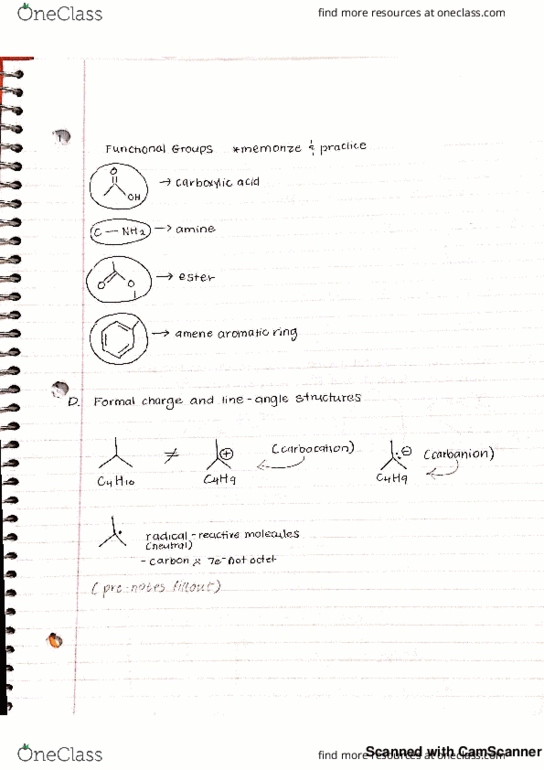 OneClass
find more resources at oneclass.com
Functional Groups *memorize & practice
O
OH
→ carboxylic acid
C — NH2 → amine
O O
→ ester
→ amene aromatic ring
D. Formal charge and line-angle structures
≠ ⊕ (carbocation) ⊖ (carbanion)
C4H10 C4H9 C4H9
radical - reactive molecules
(neutral)
- carbon 7e- not octet
(pre-notes fillout)
OneClass
find more resources at oneclass.com
Scanned with CamScanner